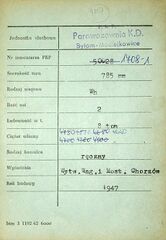 Jednostka służbowa
Parowozownia K.D.
Bytom-Karb
Nr inwentarza PKP
50028 1408-1
Szerokość toru
785 mm
Rodzaj wagonu
Wh
Ilość osi
2
Ładowność w t.
8 ton
Ciężar własny
Rodzaj hamulca
ręczny
Wytwórnia
Wytw. Wag. i Most. Chorzów
Rok budowy
1947